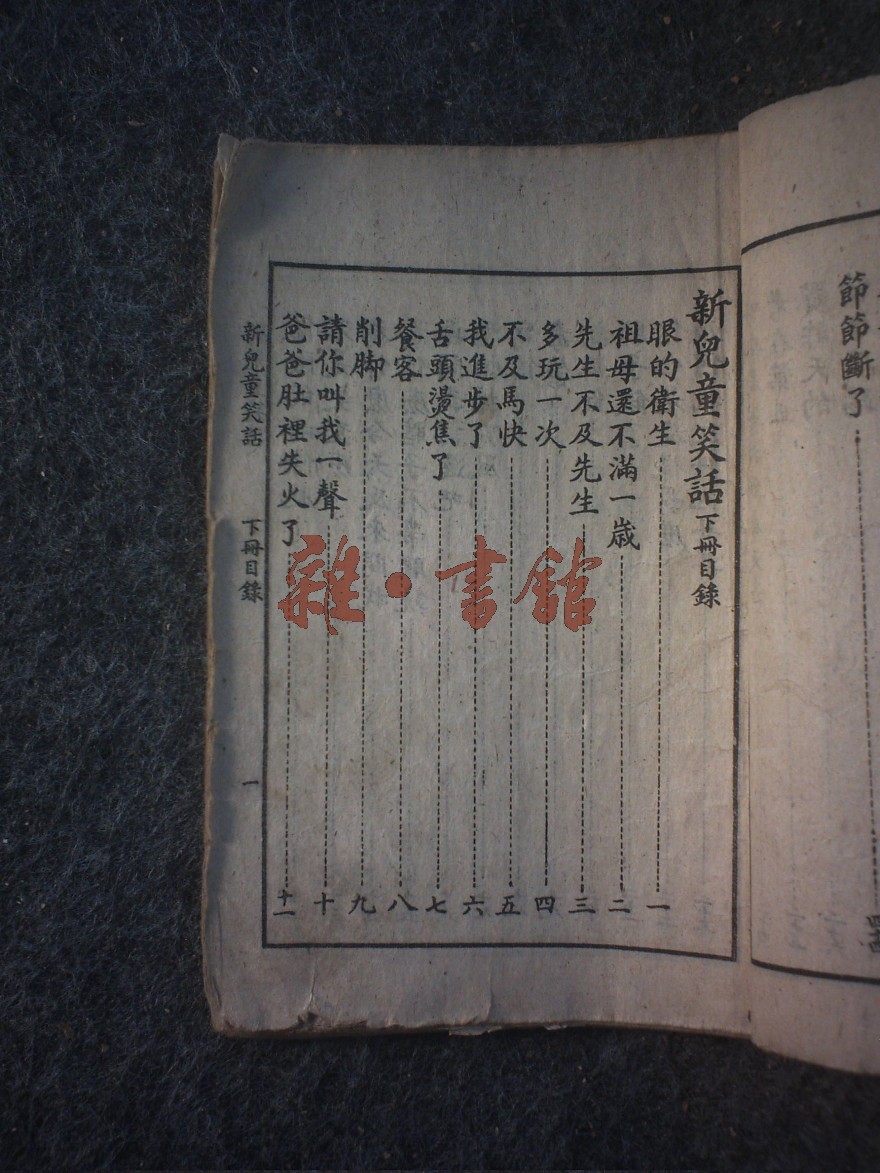 節節斷了
新兒童笑話 下冊目錄
眼的衛生 一
祖母還不滿一歲 二
先生不及先生 三
多玩一次 四
不及馬快 五
我進步了 六
舌頭燙焦了 七
餐客 八
削脚 九
請你叫我一聲 十
爸爸肚裡失火了 十一
新兒童笑話 下冊目錄 一
雜·書館